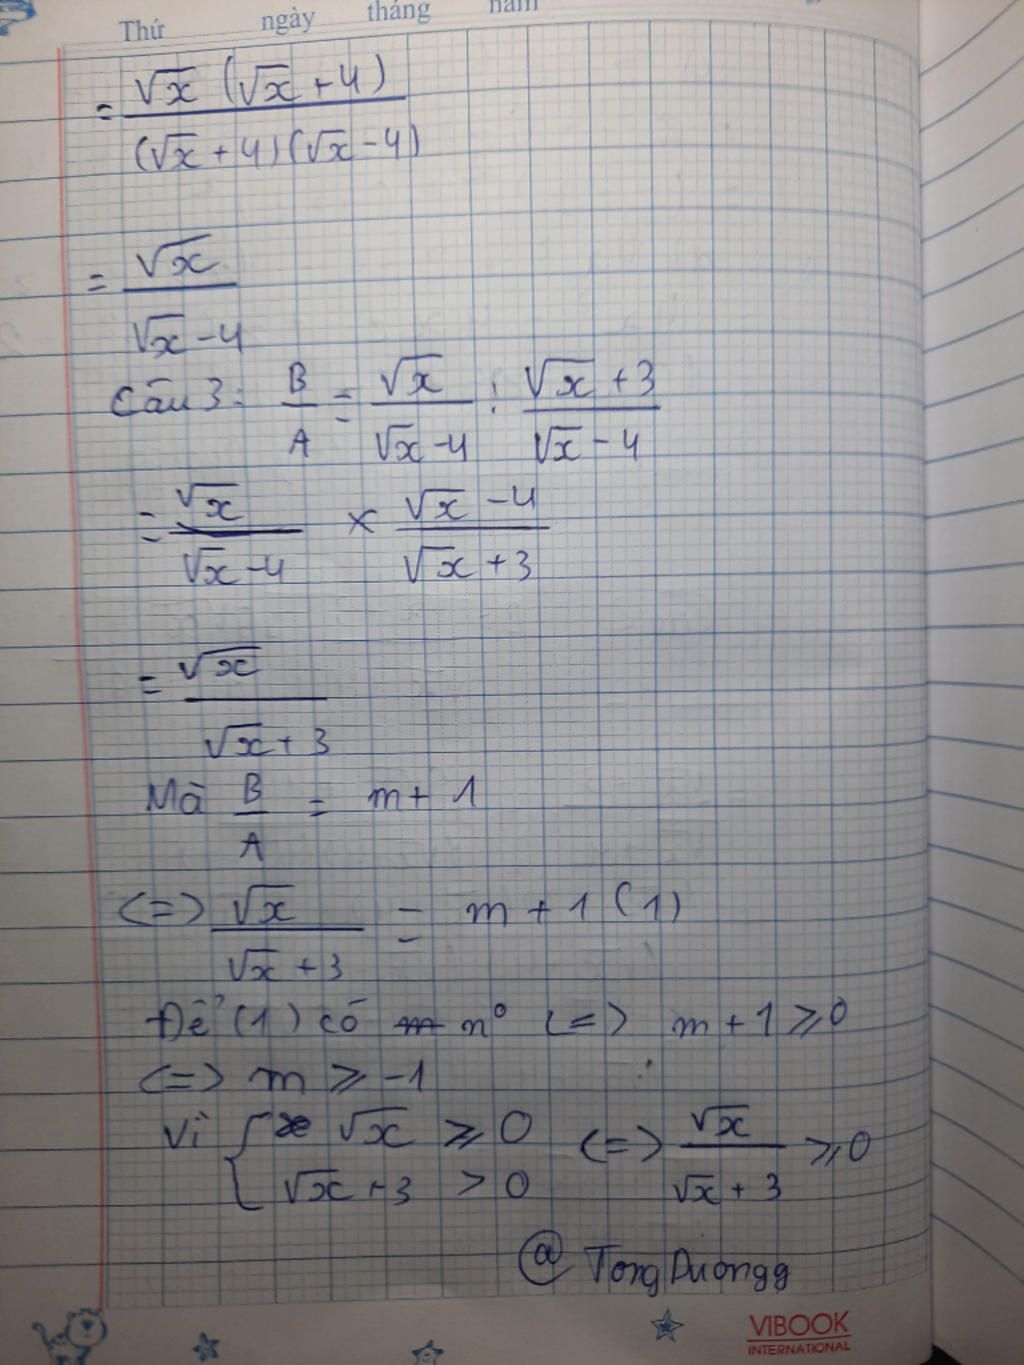 Thứ ngày tháng năm
= √x (√x + 4) / (√x + 4)(√x - 4)
= √x / √x - 4
Câu 3: B/A = √x / √x - 4 : √x + 3 / √x - 4
= √x / √x - 4 × √x - 4 / √x + 3
= √x / √x + 3
Mà B/A = m + 1
<=> √x / √x + 3 = m + 1 (1)
Để (1) có n° <=> m + 1 ≥ 0
<=> m ≥ -1
Vì { √x ≥ 0 <=> √x / √x + 3 ≥ 0
√x + 3 > 0
@ TongDuongg
VIBOOK
INTERNATIONAL